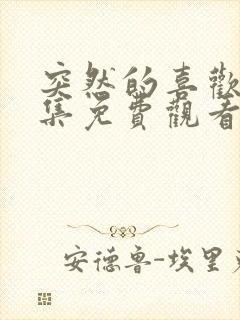 突然的喜歡
集免費觀看
安德魯-埃里